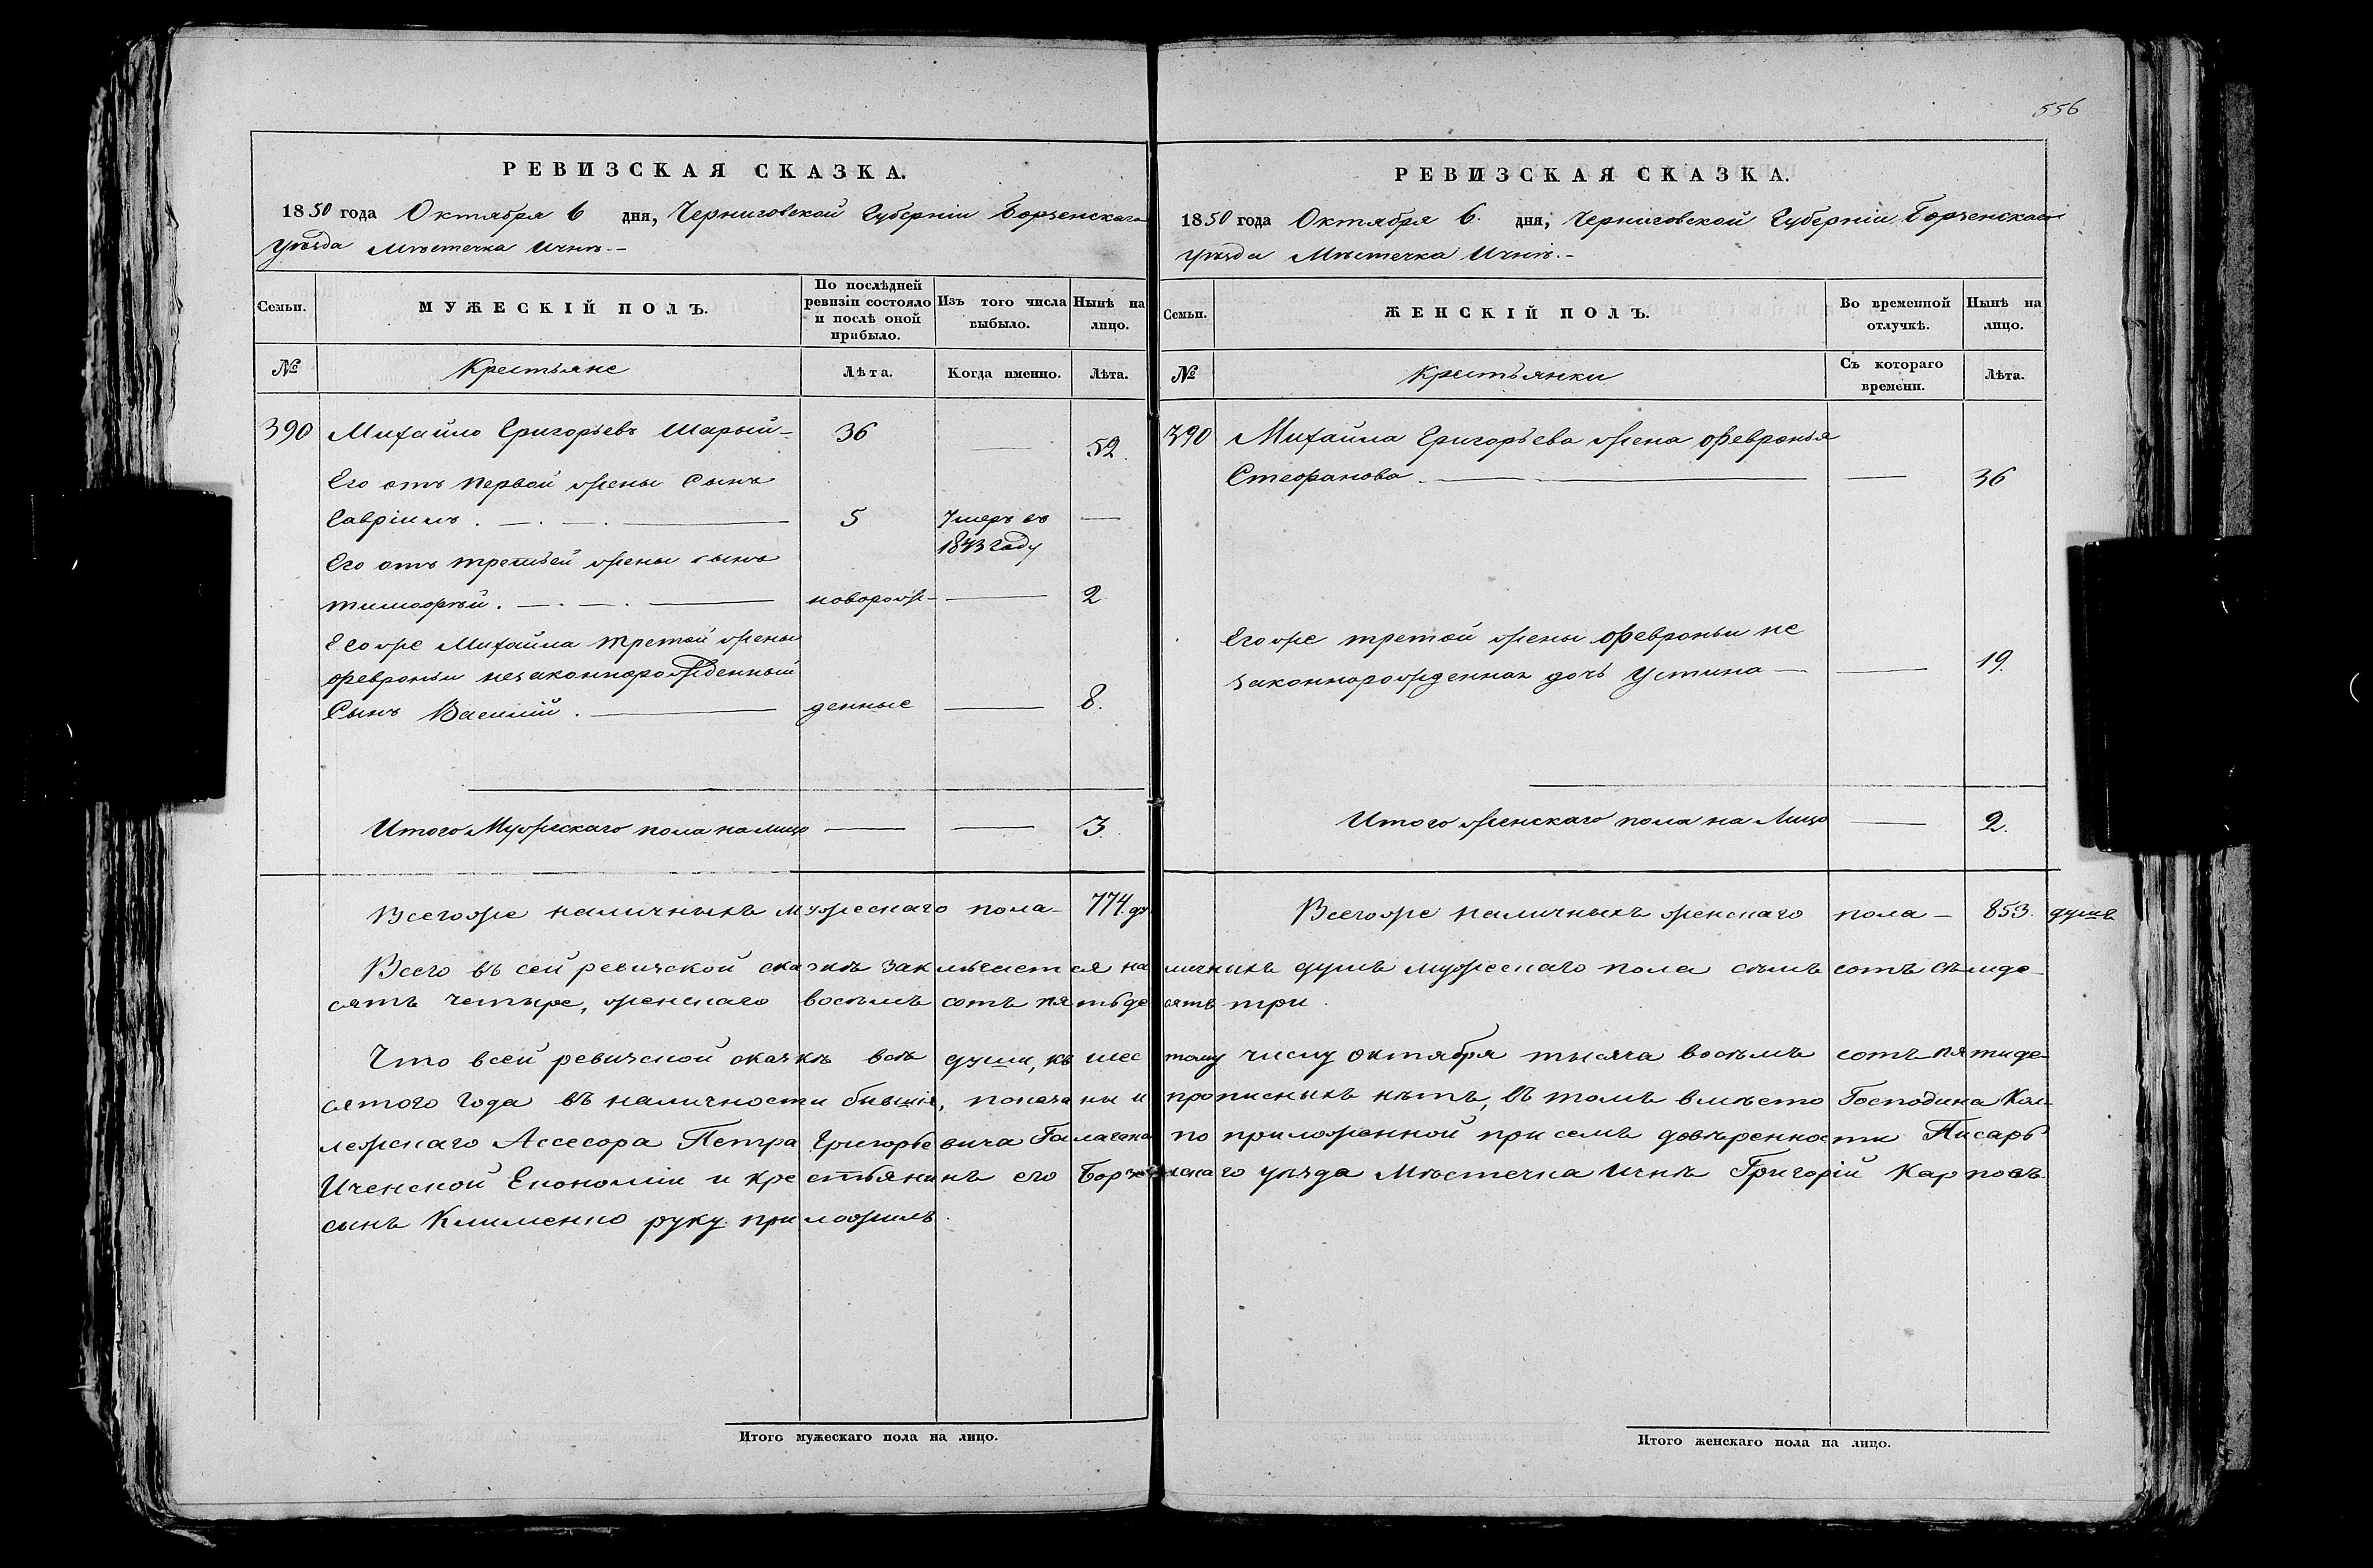 556
РЕВИЗСКАЯ СКАЗКА.
1850 года Октября 6 дня, Черниговской Губерніи Борзенскаго
Уѣзда Мѣстечка Ичнѣ.-
Семьи.
МУЖЕСКІЙ ПОЛЪ.
По послѣдней ревизіи состояло и послѣ оной прибыло.
Изъ того числа выбыло.
Нынѣ на лицо.
№
Крестьяне
Лѣта.
Когда именно.
Лѣта.
390 Михайло Григорьевъ Шарый- 36 — 52.
Его отъ первой жены Сынъ
Гавріилъ. — 5 Умеръ въ —
1843 году
Его отъ третьей жены сынъ
тимофѣй. — новорож- — 2
Егоже Михайла третой жены
февроньи незаконнорожденный
Сынъ Василій. — денные — 8.
Итого Мужескаго пола налицо — — 3.
РЕВИЗСКАЯ СКАЗКА.
1850 года Октября 6. дня, Черниговской Губерніи Борзенскаго
Уѣзда Мѣстечка Ичнѣ.-
Семьи.
ЖЕНСКІЙ ПОЛЪ.
Во временной отлучкѣ.
Нынѣ на лицо.
№
Крестьянки
Съ котораго времени.
Лѣта.
390 Михайла Григорьева жена февронья
Стефанова. — — 36
Егоже третой жены февроньи не
законнорожденная дочь Устина — — 19.
Итого женскаго пола на Лицо — 2.
Всегоже наличныхъ мужескаго пола- 774. ду Всегоже наличныхъ женскаго пола- 853. душъ
Всего въ сей ревизской сказкѣ заключается наличныхъ душъ мужескаго пола семъ сотъ семде-
сятъ четыре, женскаго восемъ сотъ пятьдесятъ три.
Что всей ревизской сказкѣ всѣ души, къ шестому числу октября тысяча восемъ сотъ пятиде-
сятого года въ наличности бывшія, показаны и прописныхъ нѣтъ, въ томъ вмѣсто Господина Кол-
лежскаго Ассесора Петра Григорьевича Галагана по приложенной при семъ довѣренности Писарь
Иченской Економіи и крестьянинъ его Борзенскаго уѣзда Мѣстечка Ичнѣ Григорій Карповъ
сынъ Клименко руку приложилъ.
Итого мужескаго пола на лицо.
Итого женскаго пола на лицо.